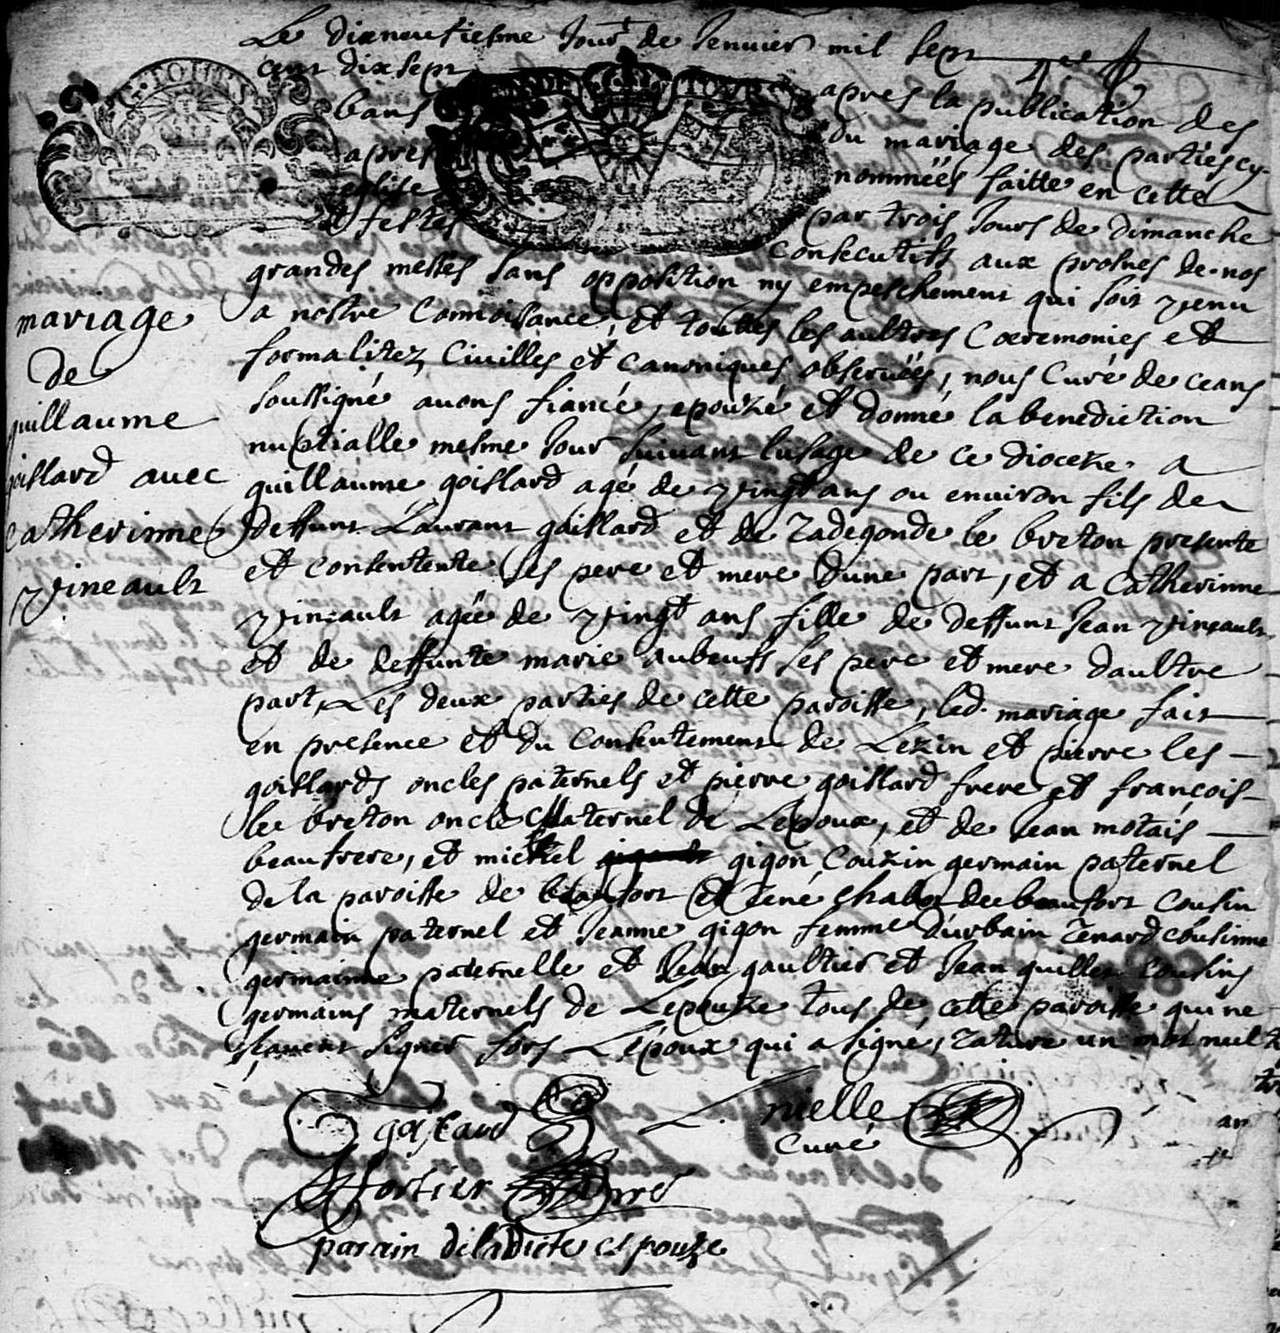 Le dixneufiesme Jour de Jenvier mil sept
cent dix sept apres la publication des
bans du mariage des parties cy
apres nommées faitte en cette
eglise par trois Jours de dimanche
et festes Consecutifs aux prosnes de nos
grandes messes sans opposition ny empeschement qui soit venu
a nostre Connoissance, et touttes les aultres Cœremonies et
formalitez Civilles et Canoniques observées, nous Curé de ceans
soussigné avons fiancé, epouzé et donné la benediction
nuptialle mesme Jour suivant lusage de ce dioceze a
guillaume goislard agé de vingt ans ou environ fils de
deffunt Laurant goislard et de Radegonde le breton presente
et consentente ses pere et mere dune part, et a Catherinne
vineault agée de vingt ans fille de deffunt Jean vineault
et de deffunte marie aubeufs ses pere et mere daultre
part, Les deux parties de cette paroisse, led. mariage fait
en presence et du Consentement de Lezin et pierre les
goislards oncles paternels et pierre goislard frere et françois
le breton oncle Maternel de Lepoux, et de Jean motais
beaufrere, et michel gigon Couzin germain paternel
de la paroisse de beaufort et René Chabot de beaufort Cousin
germain paternel et Jeanne gigon femme durbain Renard Cousinne
germainne paternelle et Jean gaultier et Jean quillet Cousins
germains maternels de Lepouze tous de cette paroisse qui ne
sçavent signer fors Lepoux qui a signé, Rature un mot nul
mariage
de
guillaume
goislard avec
Catherinne
vineault
goislard
L. nielle
Curé
fortier
parain de ladicte espouze